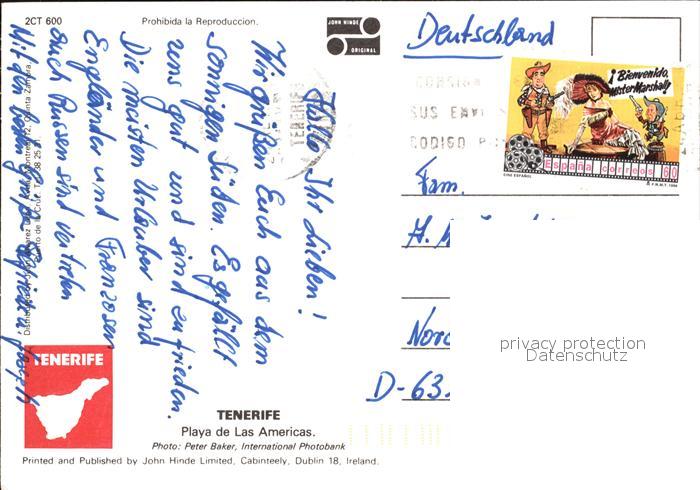 2CT 600
Prohibida la Reproduccion.
JOHN HINDE
ORIGINAL
Hallo Ihr Lieben!
Wir grüßen Euch aus dem
sonnigen Süden. Es gefällt
uns gut und sind zufrieden.
Die meisten Urlauber sind
Engländer und Franzosen
auch Russen sind vertreten
Deutschland
CONSIGN
SUS ENV
CODIGO P
TENERIFE
¡Bienvenido,
Mister Marshall!
España correos 60
CINE ESPAÑOL
F.N.M.T. 1994
Fam.
H. M
Nord
D-63.
privacy protection
Datenschutz
TENERIFE
TENERIFE
Playa de Las Americas.
Photo: Peter Baker, International Photobank
Printed and Published by John Hinde Limited, Cabinteely, Dublin 18, Ireland.